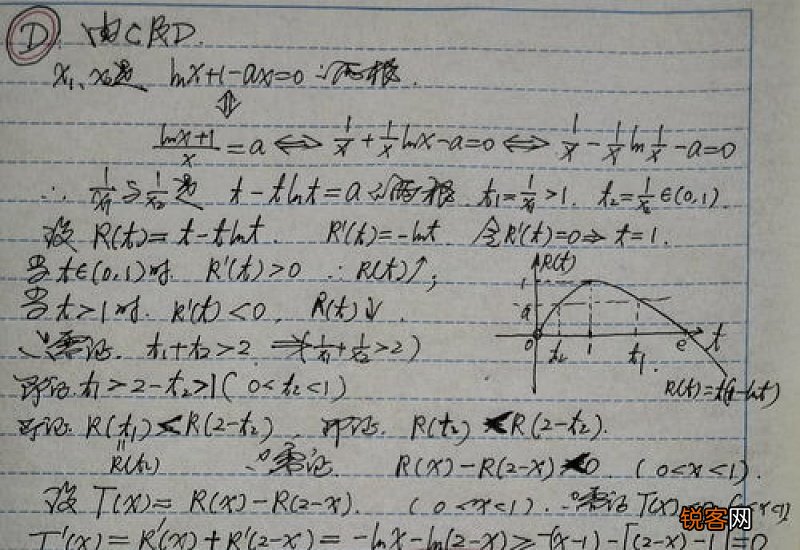 D. 由C及D.
x₁、x₂是 lnx+1-ax=0 两根.
⇕
(lnx+1)/x = a ⇔ 1/x + 1/x lnx - a = 0 ⇔ 1/x - 1/x ln 1/x - a = 0
∴ 1/x₁与1/x₂是 t-tlnt=a 两根. t₁=1/x₁>1. t₂=1/x₂∈(0,1).
设 R(t)=t-tlnt. R'(t)=-lnt 令R'(t)=0⇒t=1.
当t∈(0,1)时. R'(t)>0 ∴R(t)↑;
当t>1时. R'(t)<0. R(t)↓.
只需证. t₁+t₂>2 ⇒(1/x₁+1/x₂>2)
即证 t₁>2-t₂>1(0<t₂<1)
即证 R(t₁)<R(2-t₂). 即证. R(t₂)<R(2-t₂).
R(t₂) 只需证 R(x)-R(2-x)<0. (0<x<1).
设T(x)=R(x)-R(2-x). (0<x<1). 只需证T(x)
T'(x)=R'(x)+R'(2-x)=-lnx-ln(2-x)≥-(x-1)-[(2-x)-1]=0
R(t)
1
a
0 t₂ 1 t₁ e t
R(t)=t(1-lnt)
锐客网